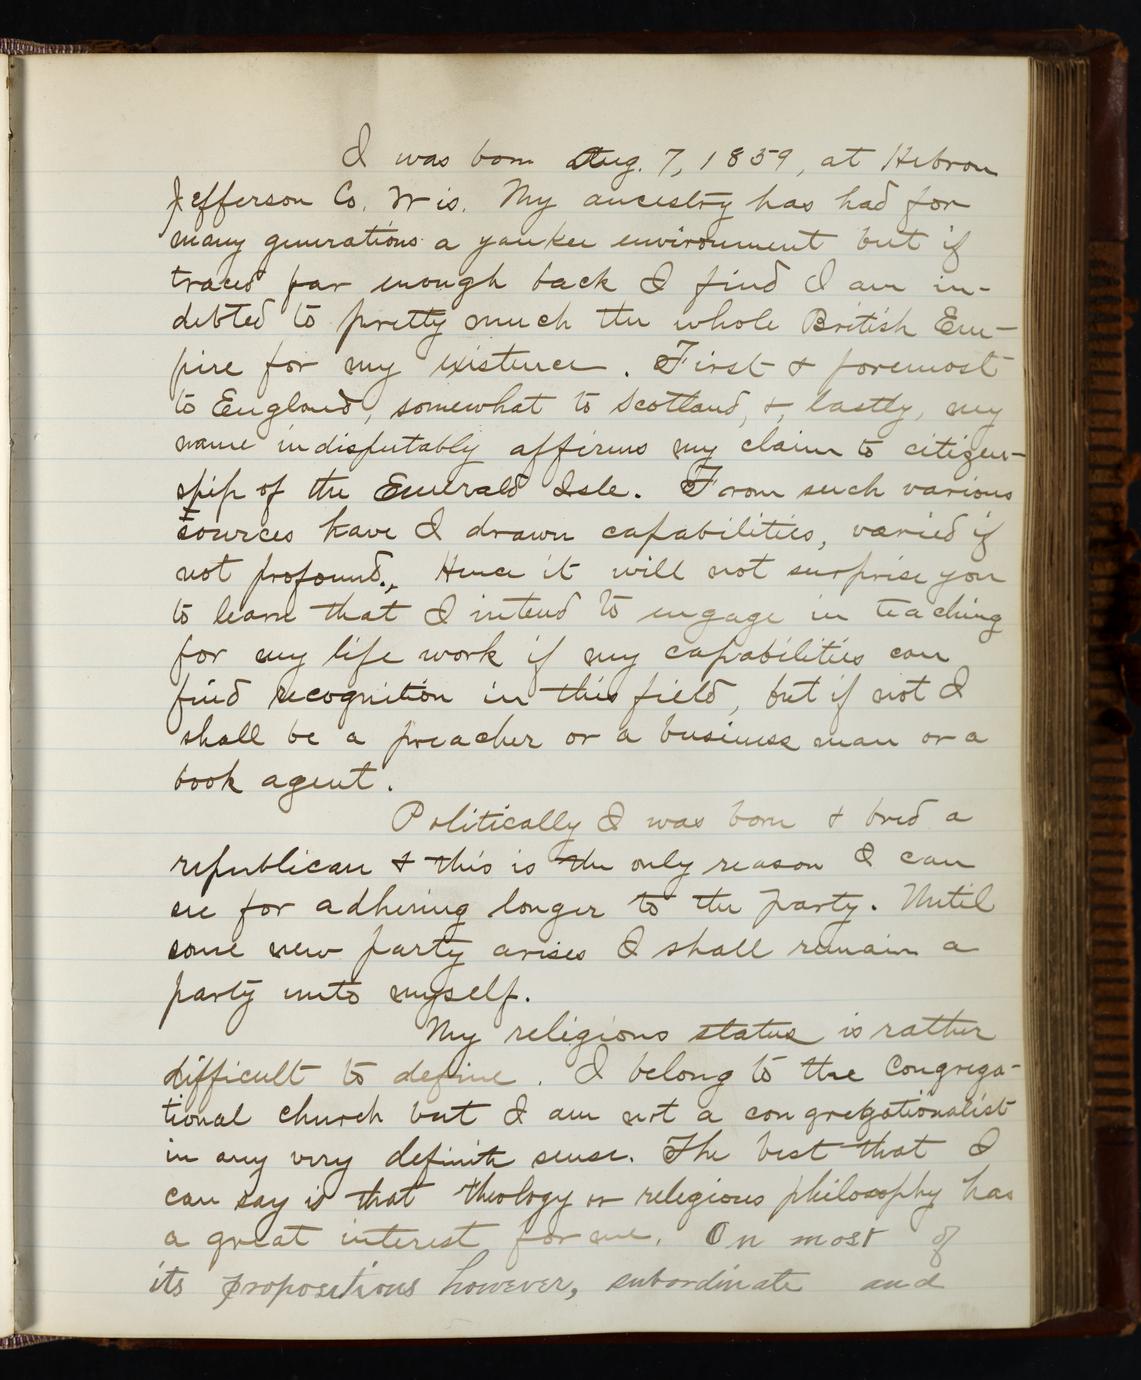 I was born Aug. 7, 1859, at Hebron
Jefferson Co. Wis. My ancestry has had for
many generations a yankee environment but if
traced far enough back I find I am in-
debted to pretty much the whole British Em-
pire for my existence. First & foremost
to England, somewhat to Scotland, &, lastly, my
name indisputably affirms my claim to citizen-
ship of the Emerald Isle. From such various
sources have I drawn capabilities, varied if
not profound. Hence it will not surprise you
to learn that I intend to engage in teaching
for my life work if my capabilities can
find recognition in this field, but if not I
shall be a preacher or a business man or a
book agent.
Politically I was born & bred a
republican & this is the only reason I can
see for adhering longer to the party. Until
some new party arises I shall remain a
party unto myself.
My religious status is rather
difficult to define. I belong to the Congrega-
tional church but I am not a congregationalist
in any very definite sense. The best that I
can say is that theology or religious philosophy has
a great interest for me. On most of
its propositions however, subordinate and